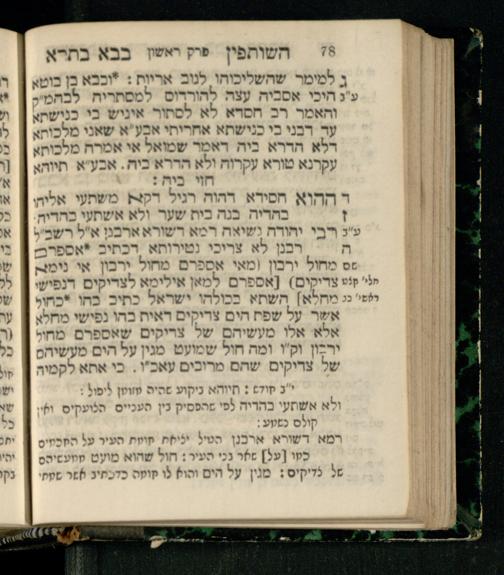 78 השותפין פרק ראשון בבא בתרא
ג למימר שהשליכוהו לגוב אריות: *ובבא בן בוטא
ע"ב היכי אסביה עצה להורדוס למסתריה לבהמ"ק
והאמר רב חסדא לא לסתור איניש בי כנישתא
עד דבני בי כנישתא אחריתי אבע"א שאני מלכותא
דלא הדרא ביה דאמר שמואל אי אמרה מלכותא
עקרנא טורא עקרוה ולא הדרא ביה. אבע"א תיוהא
חזי ביה:
ד ההוא חסידא דהוה רגיל דקא משתעי אליהו
ז בהדיה בנה בית שער ולא אשתעי בהדיה
ע"ב רבי יהודה נשיאה רמא דשורא ארבנן א"ל רשב"ל
ה רבנן לא צריכי נטירותא דכתיב *אספרם
שם מחול ירבון (מאי אספרם מחול ירבון אי נימא
תלי' קלט צדיקים) [אספרם למאן אילימא לצדיקים דנפישי
ראשי' כב מחלא] השתא בכולהו ישראל כתיב בהו *כחול
אשר על שפת הים צדיקים דאית בהו נפישי מחלא
אלא אלו מעשיהם של צדיקים שאספרם מחול
ירבון וק"ו ומה חול שמועט מגין על הים מעשיהם
של צדיקים שהם מרובים עאכ"ו. כי אתא לקמיה
תיוהא ניקוע שהיה מזומן ליפול:
ולא אשתעי בהדיה לפי שהפסיק בין העניים הצועקים ואין
קולם נשמע:
רמא דשורא ארבנן הטיל יציאת חומת העיר על החכמים
כמו [על] שאר בני העיר: חול שהוא מועט ממעשיהם
של צדיקים: מגין על הים והוא לו חומה כדכתיב אשר שמתי